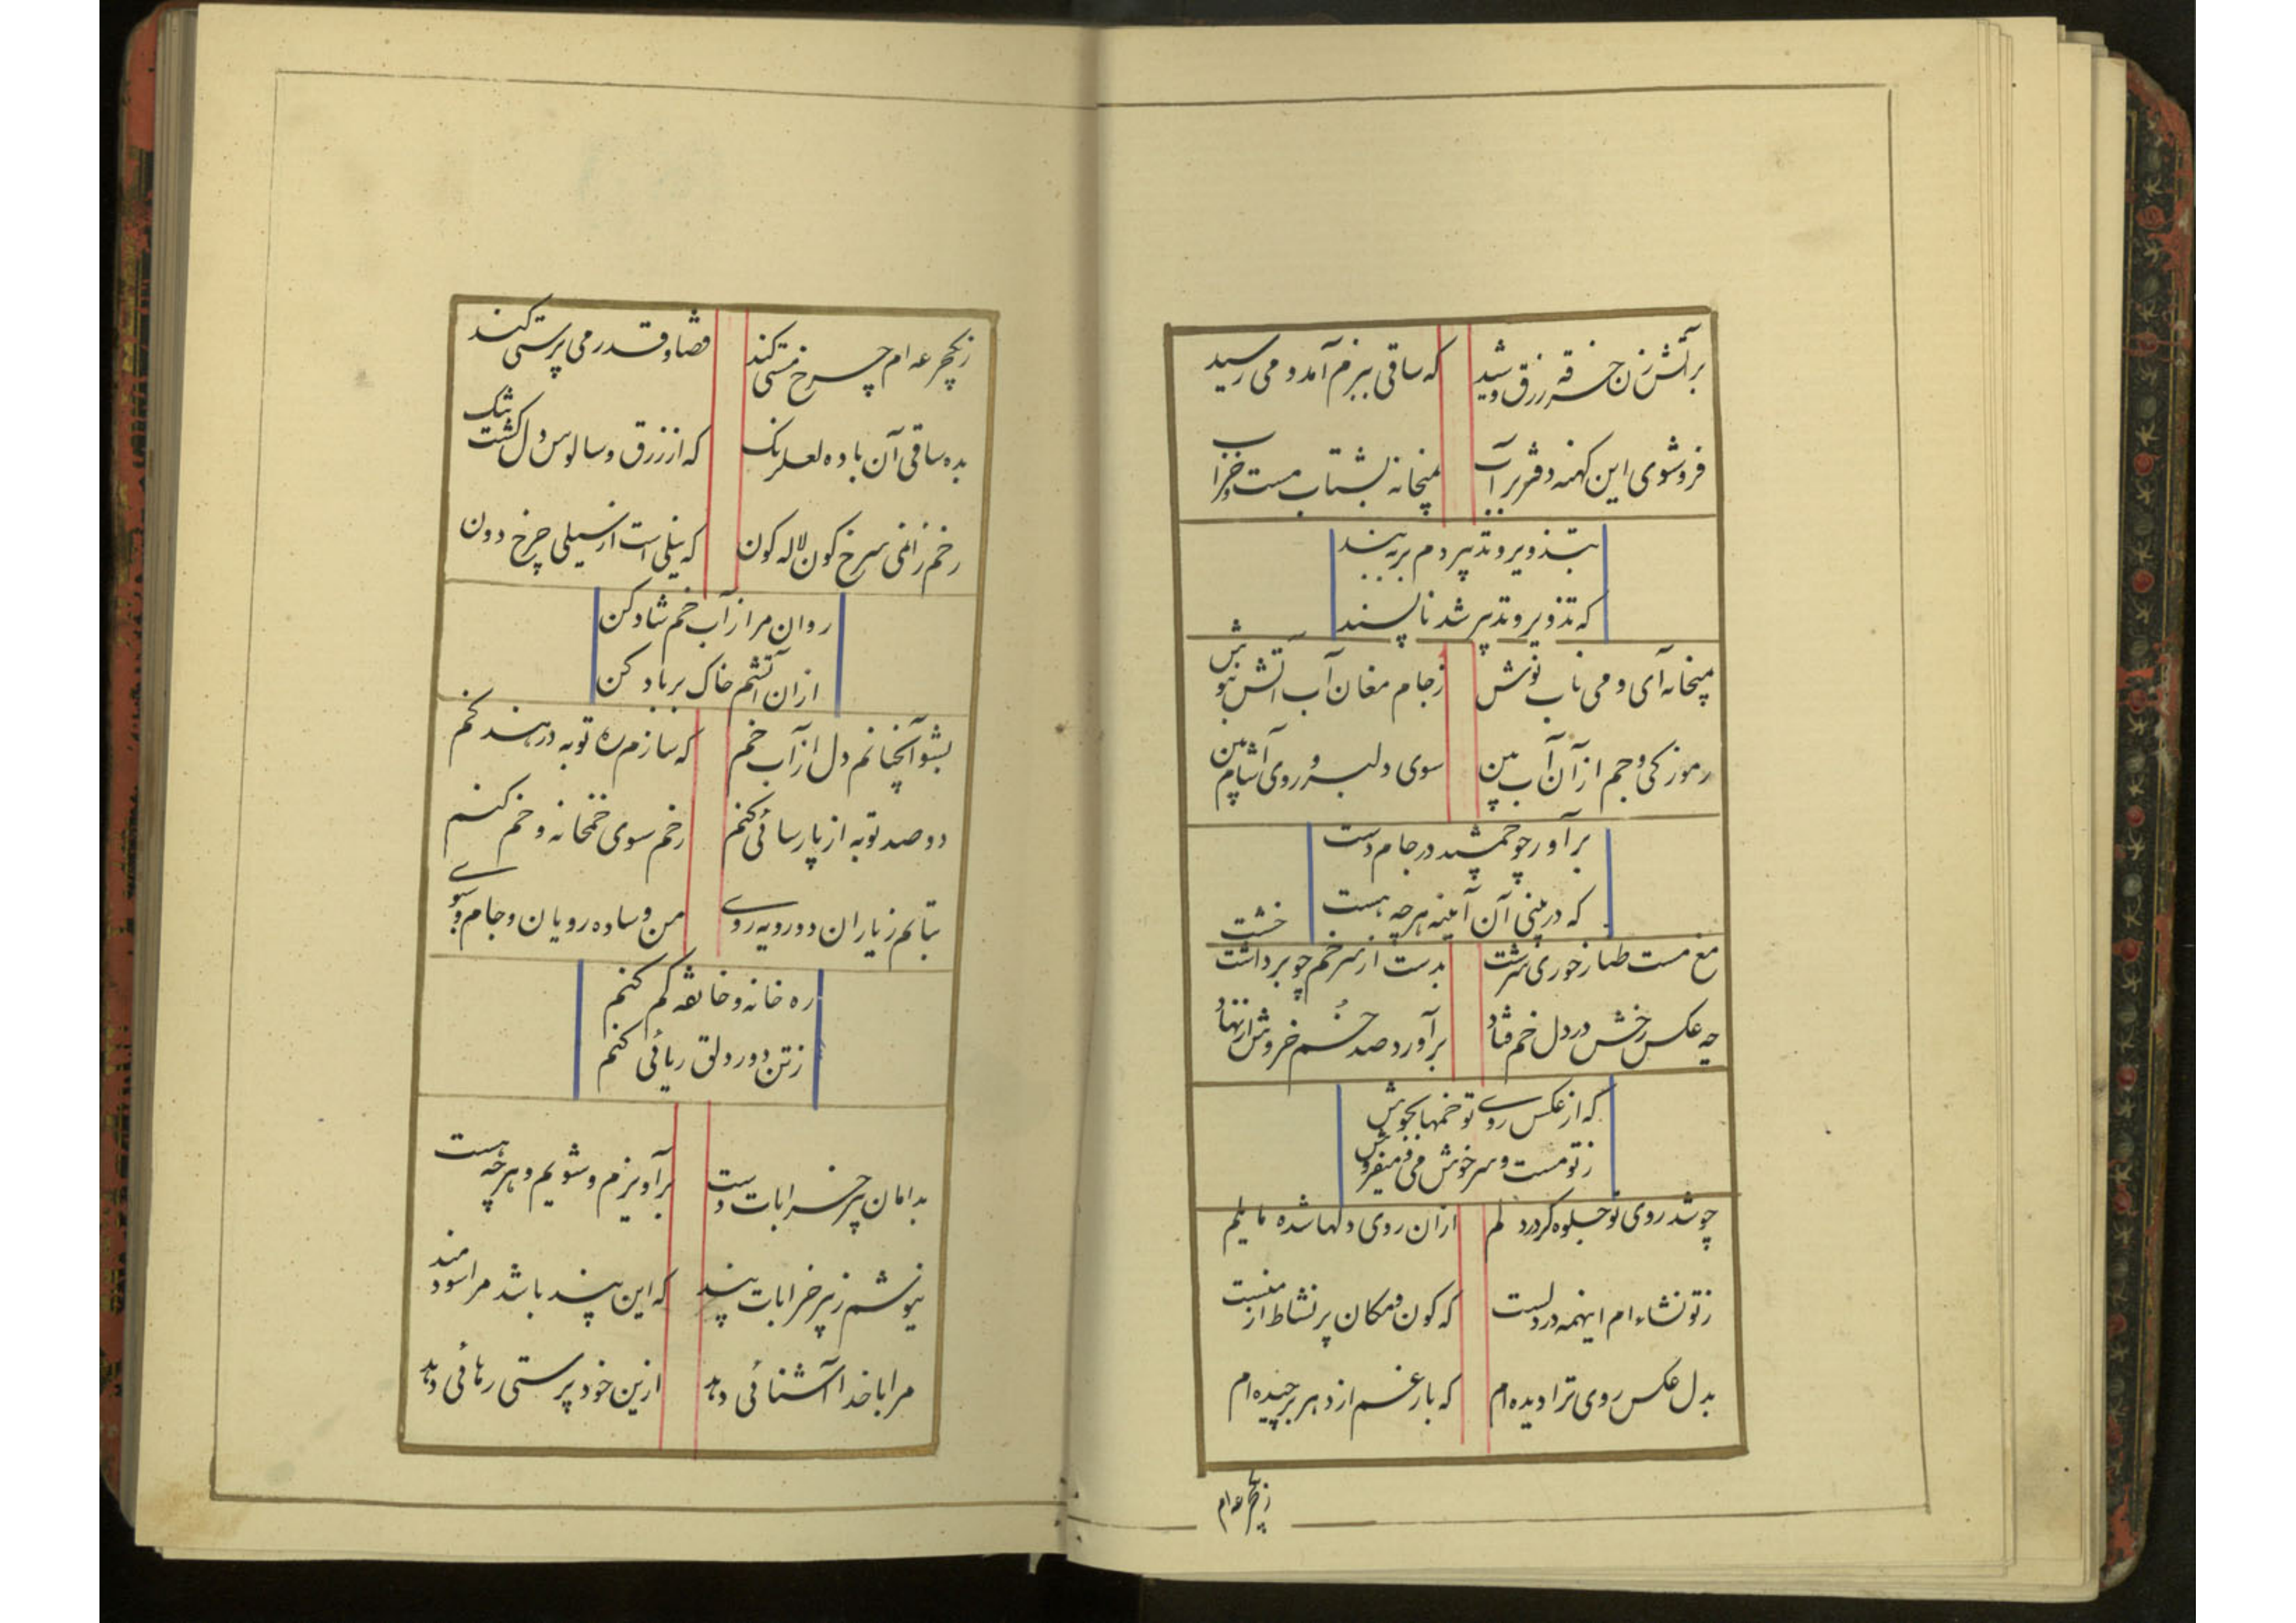 بر آتش زن خرقه زرق و شید که ساقی ببزم آمد و می رسید
فروشوی این کهنه دفتر بر آب بمیخانه بشتاب مست و خراب
بتذویر و تدبیر دم بر مبند
که تذویر و تدبیر شد ناپسند
بمیخانه آی و می ناب نوش ز جام مغان آب آتش بنوش
رموز کی و جم از آن آب بین سوی دلبر و روی آشام بین
بر آور چو جمشید در جام دست
که در بینی آن آینه هر چه هست
مغ مست طناز حوری سرشت بدست از سر خم چو برداشت خشت
چه عکس رخش در دل خم فتاد بر آورد صد خم خروش از نهاد
که از عکس روی تو خمها بجوش
ز تو مست و سرخوش می و میفروش
چو شد روی تو جلوه گر در دلم از ان روی دلها شده مایلم
ز تو نشاء ام اینهمه در دلست که کون و مکان پر نشاط از منست
بدل عکس روی ترا دیده ام که بار غم از دهر برچیده ام
ز یکجرعه ام
ز یکجرعه ام چرخ مستی کند قضا و قدر می پرستی کند
بده ساقی آن باده لعل رنک که از زرق و سالوس دل کشت تنک
رخم ز امی سرخ کون لاله کون که نیلی است از سیلی چرخ دون
روان مرا از آب خم شاد کن
ازان آتشم خاک بر باد کن
بشو آنچنانم دل از آب خم که سازم ره توبه در هند کم
دو صد توبه از پارسائی کنم رخم سوی خمخانه و خم کنم
بتابم ز یاران دورویه روی من و ساده رویان و جام و سبوی
ره خانه و خانقه کم کنم
ز تن دور دلق ریائی کنم
بدامان پیر خرابات دست برآویزم و شویم و هر چه هست
نیوشم ز پیر خرابات پند که این پند باشد مرا سودمند
مرا با خدا آشنائی دهد ازین خود پرستی رهائی دهد